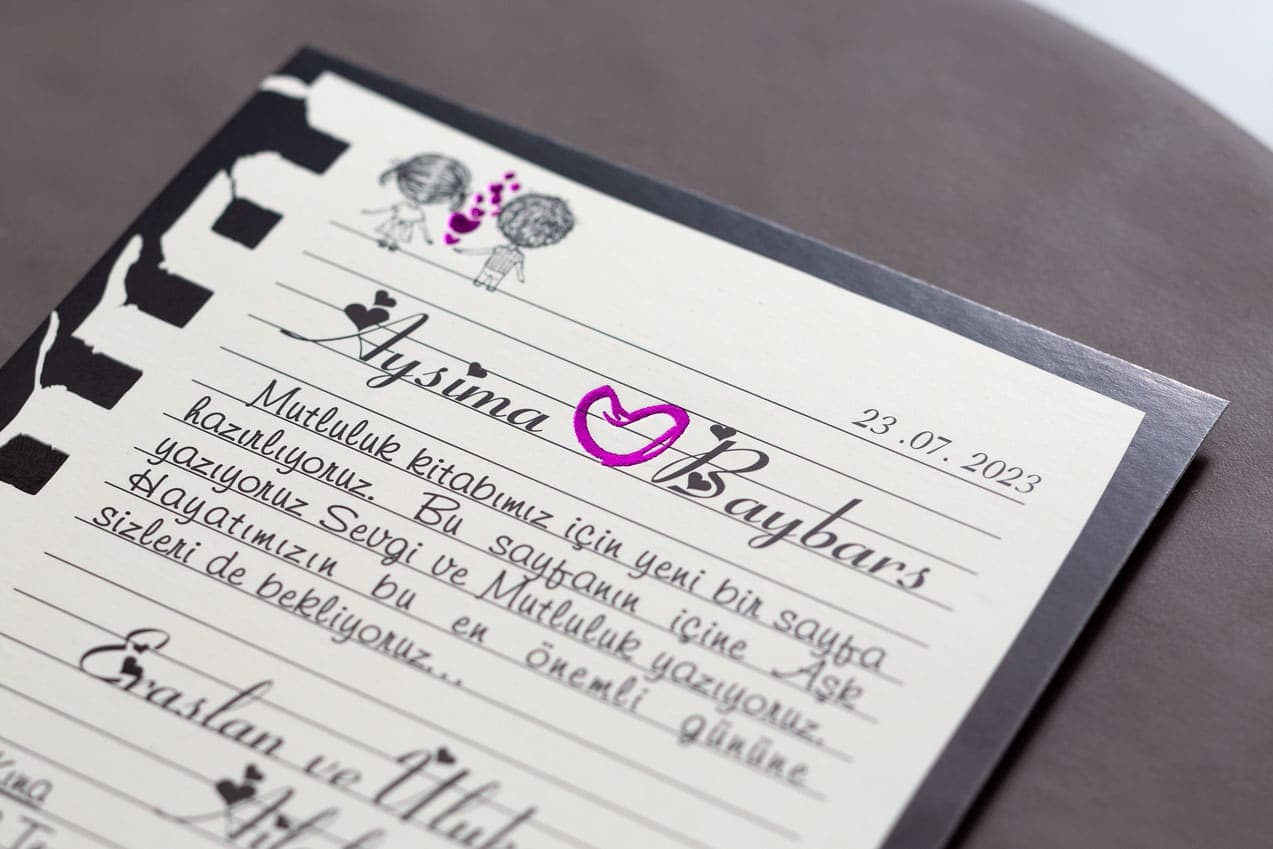 23.07.2023
Aysima Baybars
Mutluluk kitabımız için yeni bir sayfa
hazırlıyoruz. Bu sayfanın içine Aşk
yazıyoruz Sevgi ve Mutluluk yazıyoruz.
Hayatımızın bu en önemli gününe
sizleri de bekliyoruz...
Eraslan ve